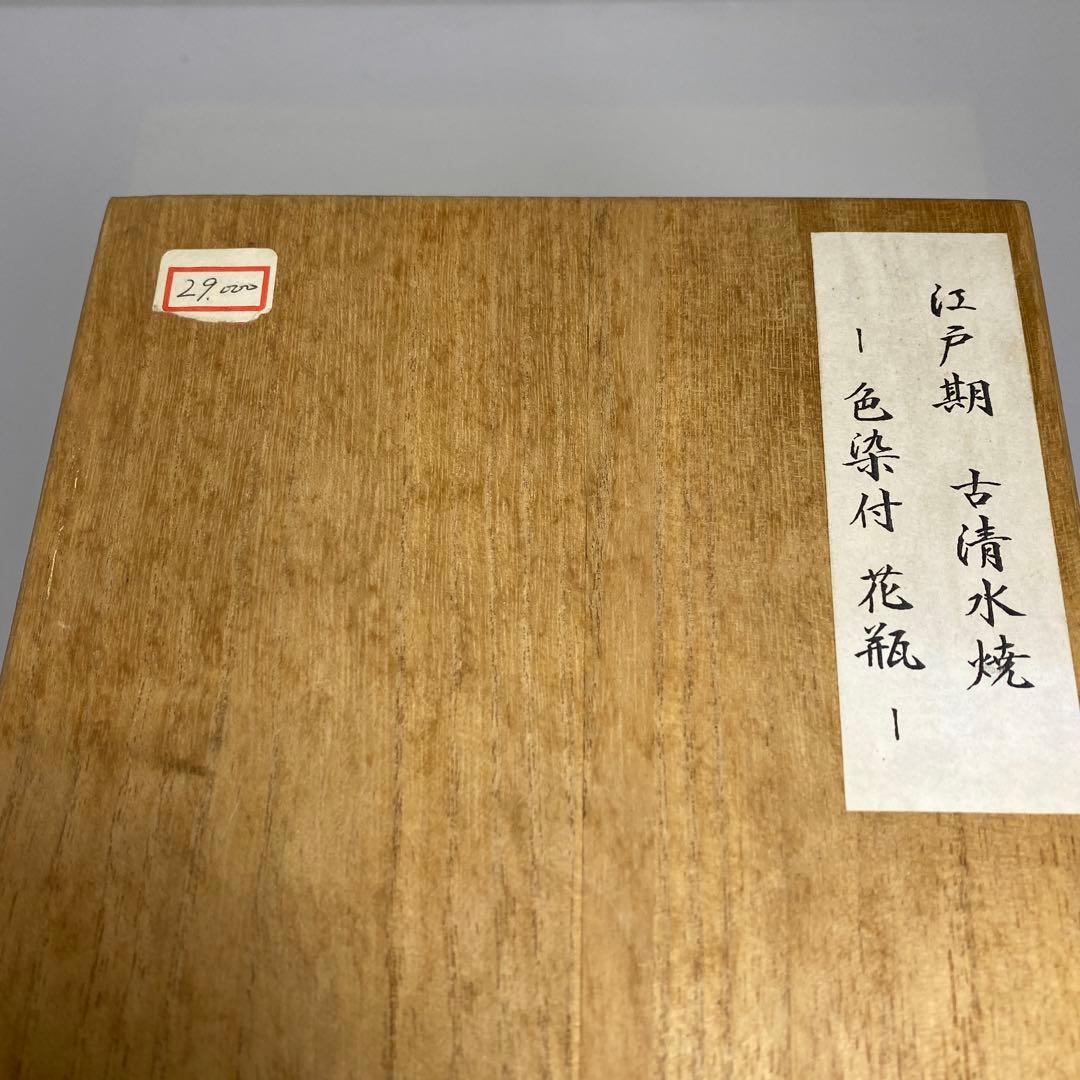 江戸期 古清水焼
ー色染付 花瓶ー
29.000